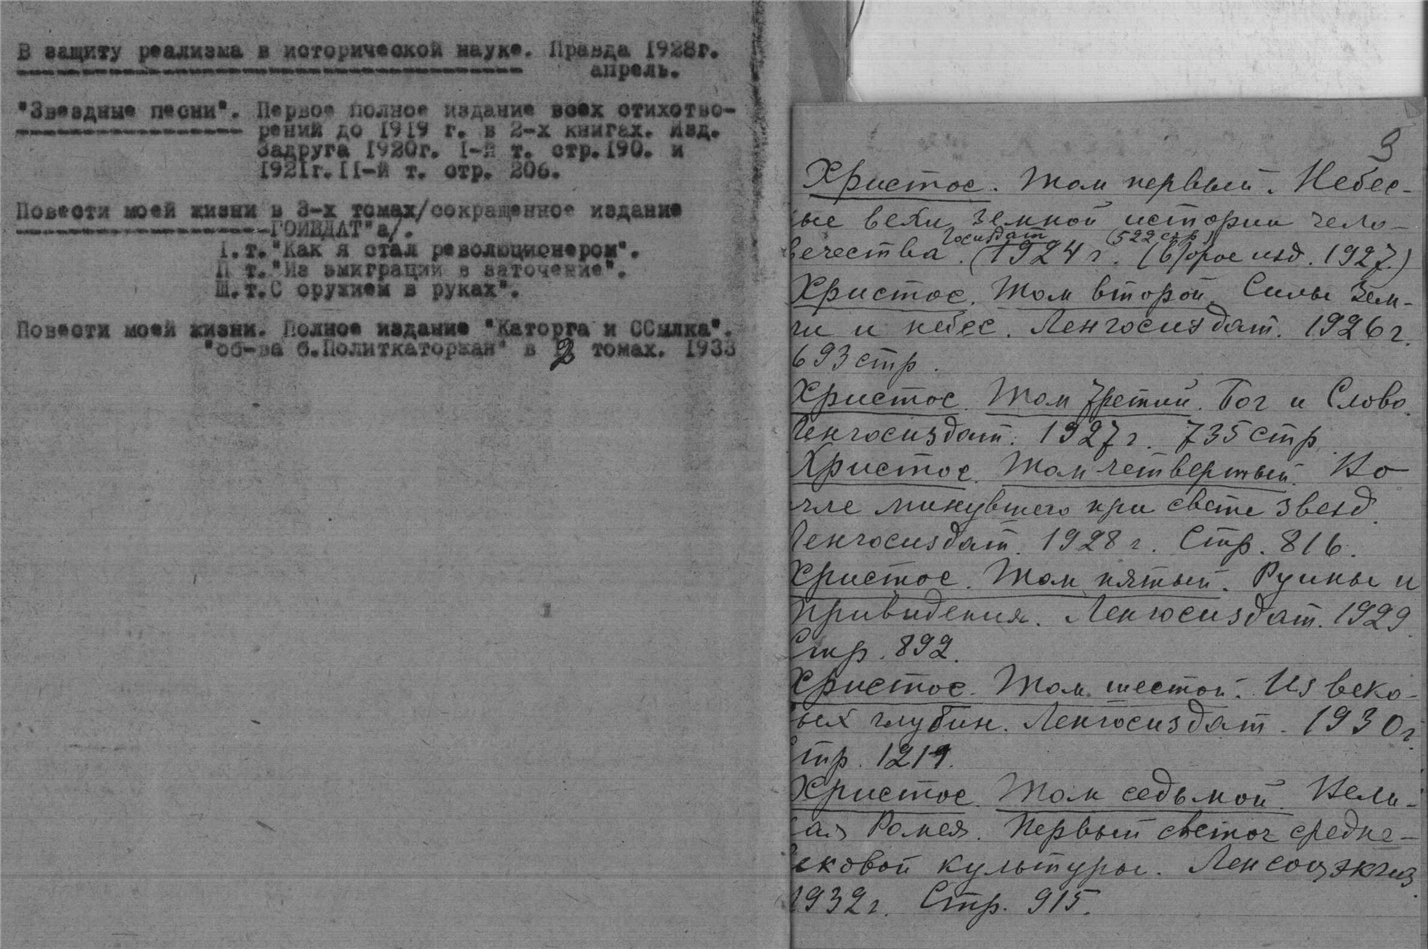 В защиту реализма в исторической науке. Правда 1928г.
апрель.
"Звездные песни". Первое полное издание всех стихотво-
рений до 1919 г. в 2-х книгах. Изд.
Задруга 1920г. I-й т. стр.190. и
1921г. II-й т. стр. 206.
Повести моей жизни в 3-х томах/сокращенное издание
а/.
I.т."Как я стал революционером".
П т."Из эмиграции в заточение".
Ш.т.С оружием в руках".
Повести моей жизни. Полное издание "Каторга и ССылка".
"об-ва б.Политкаторжан" в 2 томах. 1933
Христос. Том первый. Небес-
ные вехи земной истории чело-
Госиздат 522 стр
вечества. (1924 г. (второе изд. 1927.)
Христос. Том второй. Силы Зем-
ли и небес. Ленгосиздат. 1926 г.
693 стр.
Христос. Том третий. Бог и Слово.
Ленгосиздат. 1927 г. 735 стр
Христос. Том четвертый. Во
мгле минувшего при свете звезд.
Ленгосиздат. 1928 г. Стр. 816.
Христос. Том пятый. Руины и
Привидения. Ленгосиздат. 1929.
Стр. 892.
Христос. Том шестой. Из веко-
вых глубин. Ленгосиздат. 1930 г.
Стр. 1211.
Христос. Том седьмой. Вели-
кая Ромея. Первый светоч средне-
вековой культуры. Ленсоцэкгиз
1932 г. Стр. 915.